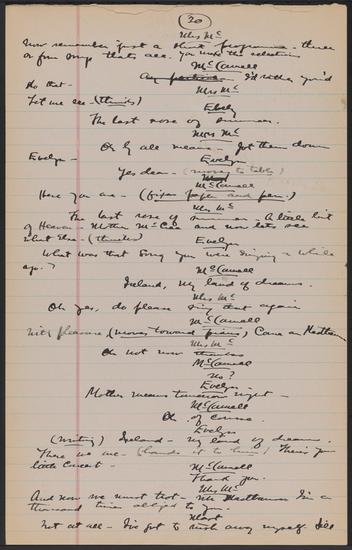 20
Mrs Mc
Now remember just a short programme - three
or four songs thats all. You make the selection
McCannell
I'd rather you'd
do that -
Mrs Mc
Let me see - (thinks)
Evelyn
The last rose of summer.
Mrs Mc
Oh by all means - Jot them down
Evelyn -
Evelyn
Yes dear - (moves to table)
McCannell
Here you are - (fixes paper and pen.)
Mrs Mc
The last rose of summer - A little bit
of Heaven - Mother McCree and now lets see
what else - (thinks)
Evelyn
What was that song you were singing a while
ago?
McCannell
Ireland, my land of dreams.
Mrs Mc
Oh yes, do please sing that again
McCannell
With pleasure (moves toward piano) Come on
Mrs Mc
Oh not now
McCannell
No?
Evelyn
Mother means tomorrow night -
McCannell
Oh of course.
Evelyn
(writing) Ireland - My land of dreams.
There we are - (hands it to him) There's your
little concert -
McCannell
Thank you.
Mrs Mc
And now we must trot - I'm a
thousand times obliged to you.
Not at all - I've got to rush away myself